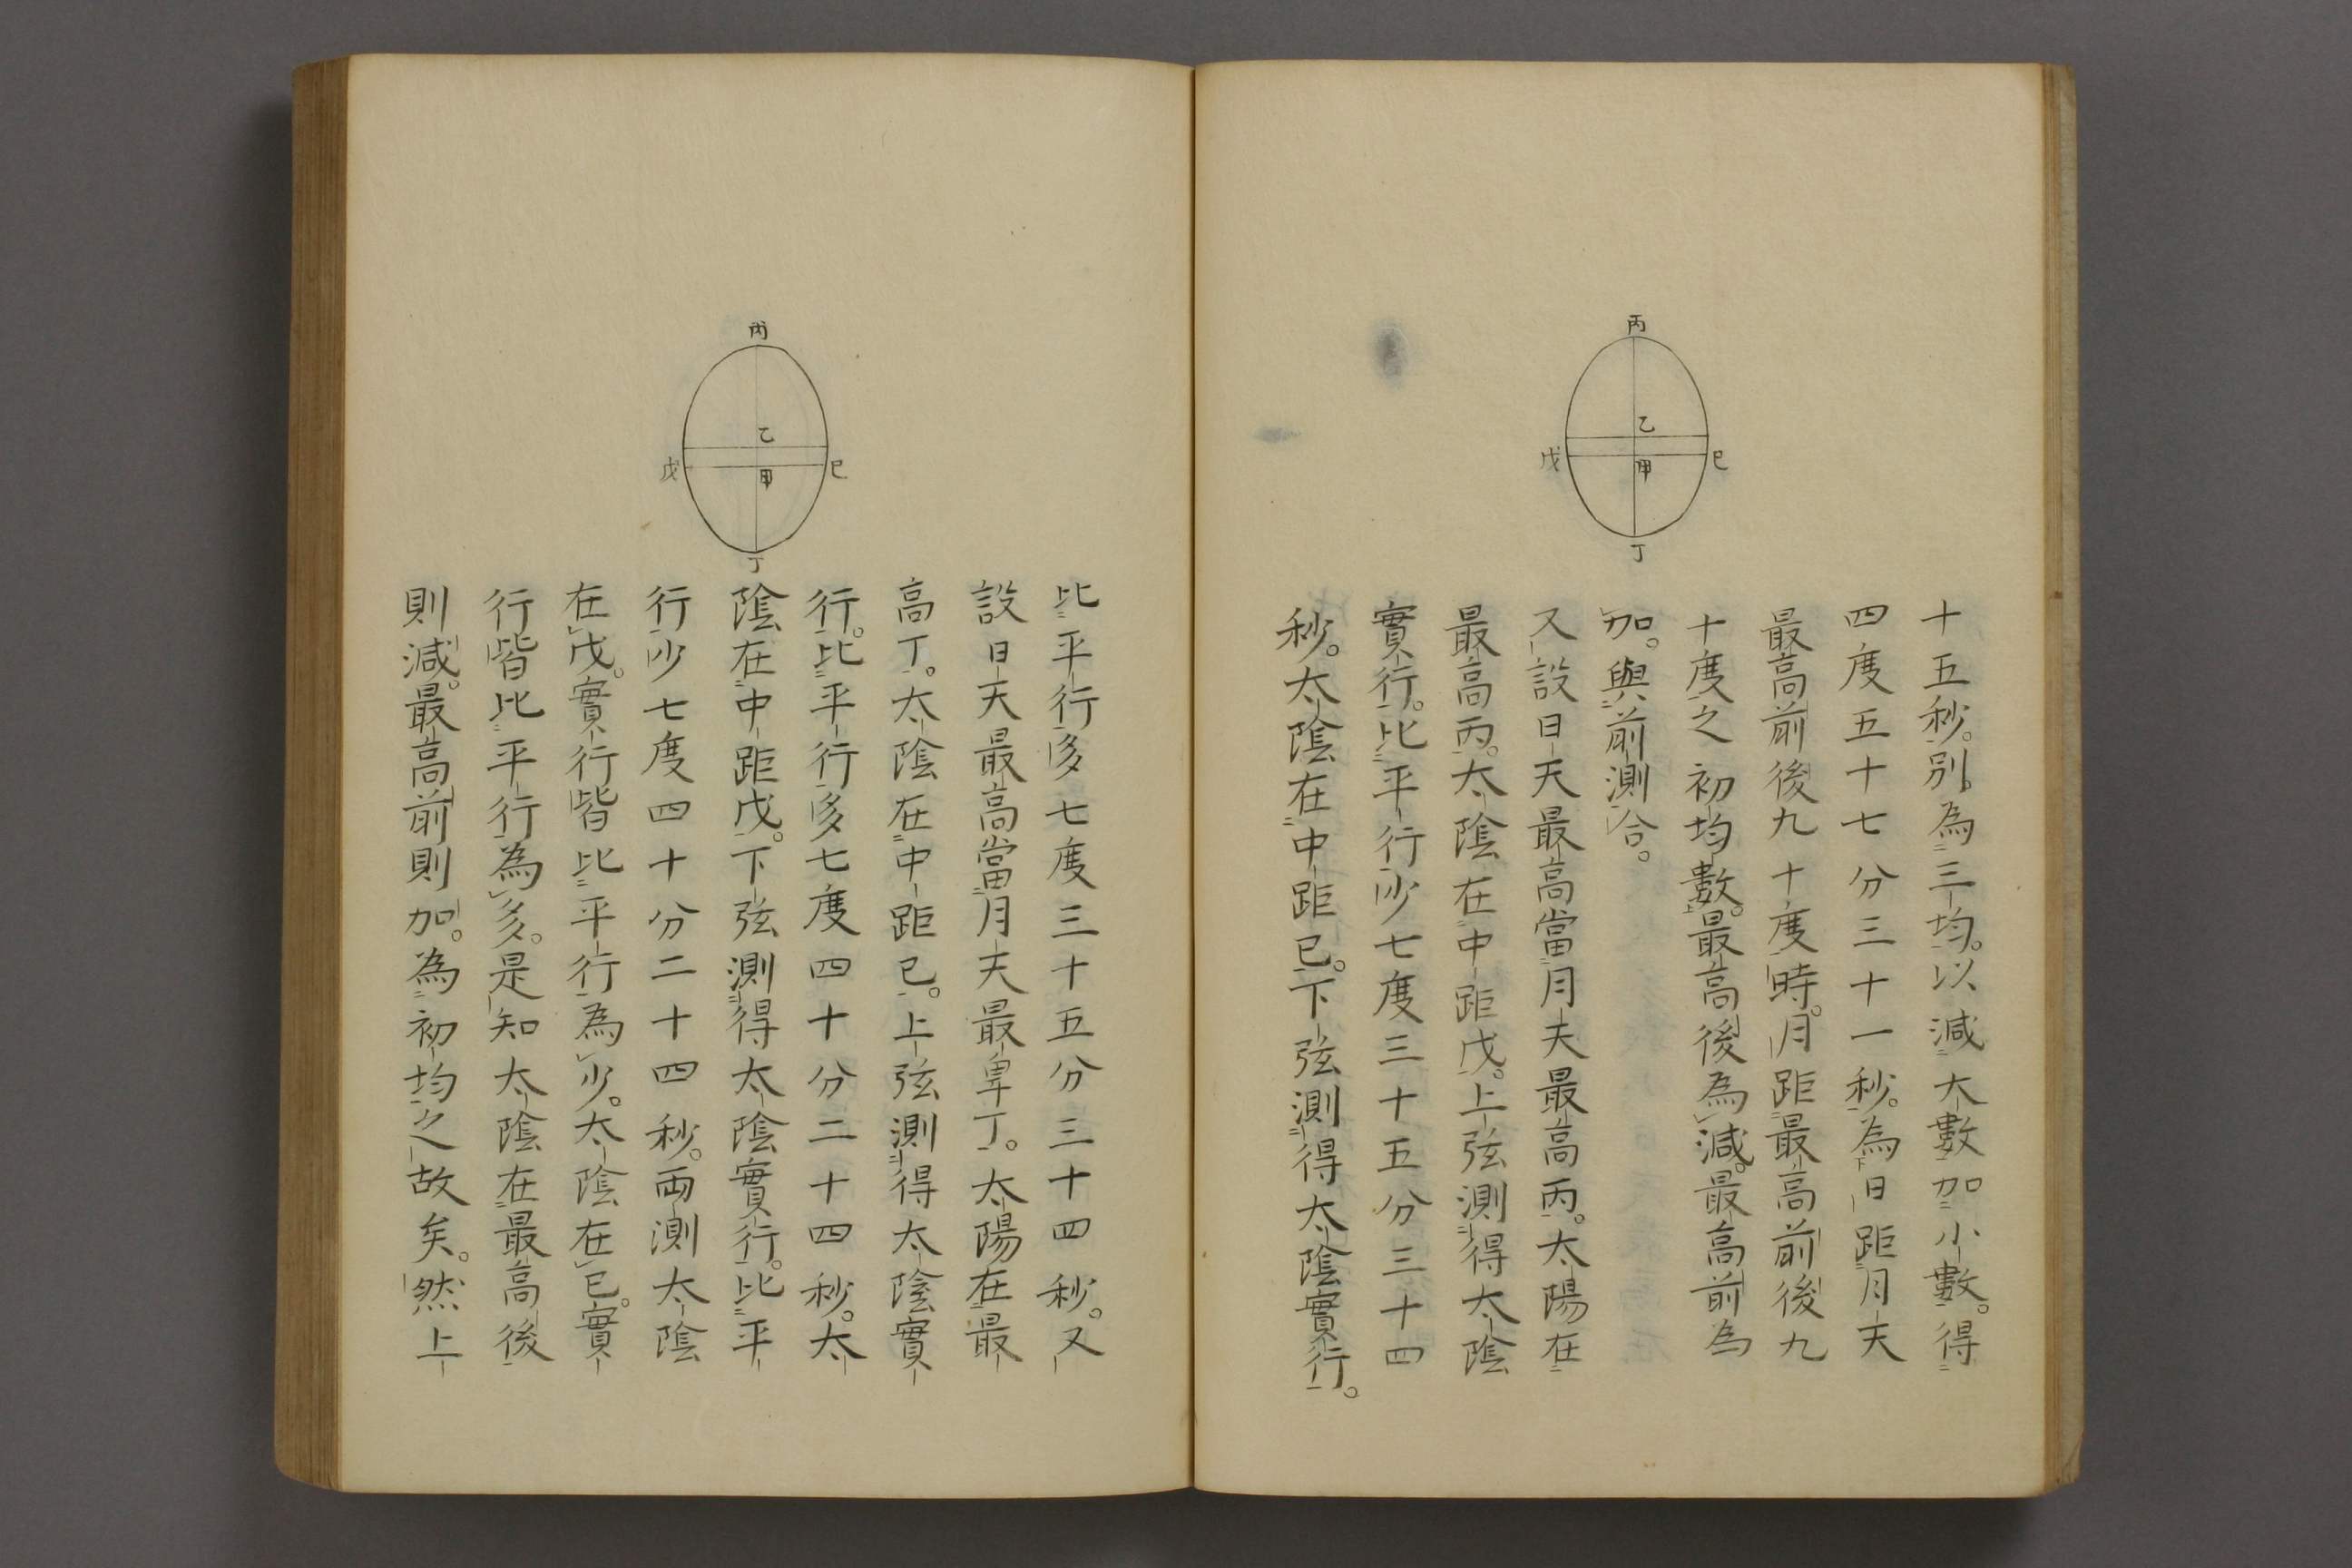 丙
乙
戊
甲
巳
丁
十五秒。別為三均。以減大數加小數。得
四度五十七分三十一秒。為日距月天
最高前後九十度時。月距最高前後九
十度之初均數。最高後為減。最高前為
加。與前測合。
又設日天最高當月天最高丙。太陽在
最高丙。太陰在中距戊。上弦測得太陰
實行。比平行少七度三十五分三十四
秒。太陰在中距巳。下弦測得太陰實行。
丙
乙
戊
甲
巳
丁
比平行多七度三十五分三十四秒。又
設日天最高當月天最卑丁。太陽在最
高丁。太陰在中距巳。上弦測得太陰實
行。比平行多七度四十分二十四秒。太
陰在中距戊。下弦測得太陰實行。比平
行少七度四十分二十四秒。兩測太陰
在戊。實行皆比平行為少。太陰在巳。實
行皆比平行為多。是知太陰在最高後
則減。最高前則加。為初均之故矣。然上